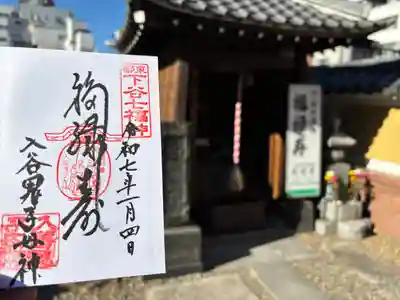 下谷七福神
福禄寿
令和七年一月四日
入谷鬼子母神
福禄寿